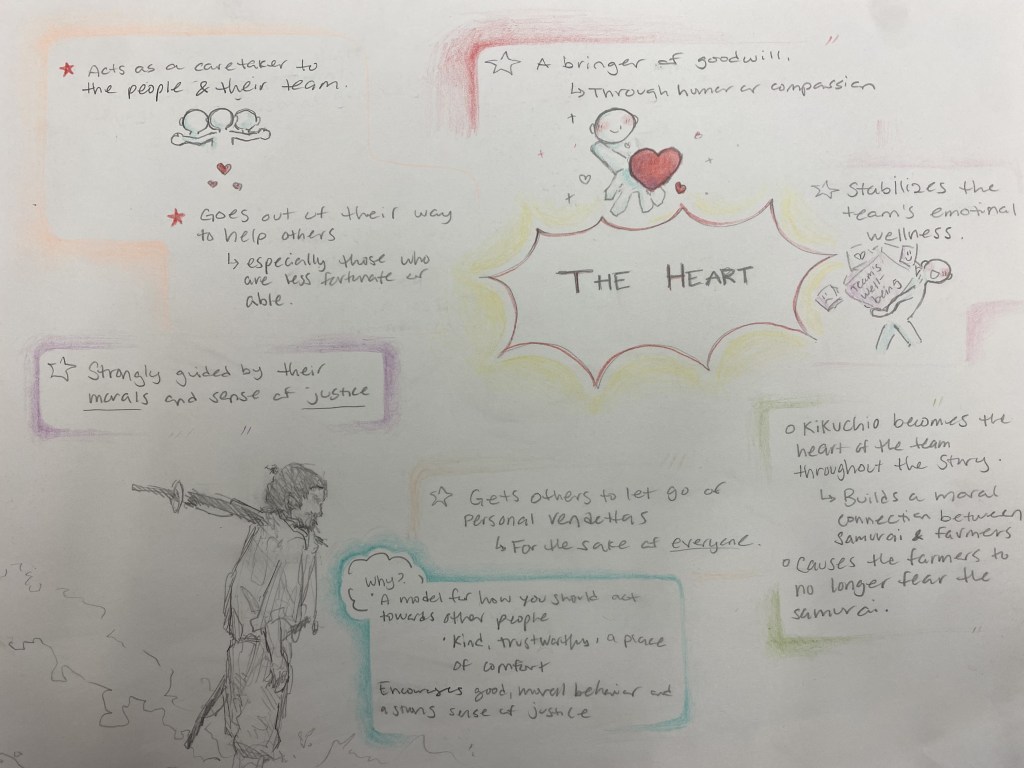 Acts as a caretaker to
the people & their team.
Goes out of their way
to help others
↳ especially those who
are less fortunate or
able.
A bringer of goodwill.
↳ Through humor or compassion
THE HEART
Stabilizes the
team's emotinal
wellness.
Team's
well-
being
Strongly guided by their
morals and sense of justice
Gets others to let go of
personal vendettas
↳ For the sake of everyone.
Why?
• A model for how you should act
towards other people
• Kind, trustworthy, a place
of comfort
Encourages good, moral behavior and
a strong sense of justice
o Kikuchio becomes the
heart of the team
throughout the story.
↳ Builds a moral
connection between
samurai & farmers
o Causes the farmers to
no longer fear the
samurai.